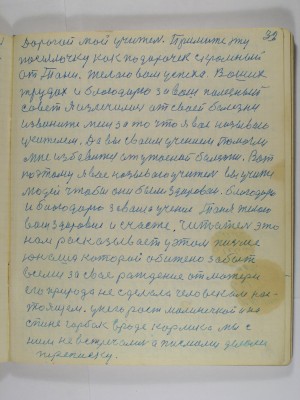 32
Дорогой мой учитель. Примите эту
посылочку как подарочек скромный
от Тани. Желаю вам успеха в ваших
трудах и благодарю за ваш полезный
совет я излечилась от своей болезни
извините меня за то что я вас называю
учителем. Да вы своим учением помогли
мне избавится от ужасной болезни. Вот
поэтому я вас называю учителем вы учите
людей чтобы они были здоровы. благодарю
и благодарю за ваше учение Таня желаю
вам здоровия и счастье. Читатель это
нам рассказывает в этом письме
юноша которой обижено забыт
всеми за свое рождение от матери
его природа не сделала человеком нас-
тоящем. у него рост малинькой и на
спине горбок вроде карлика мы с
ним не встречались а письмами делали
переписку.